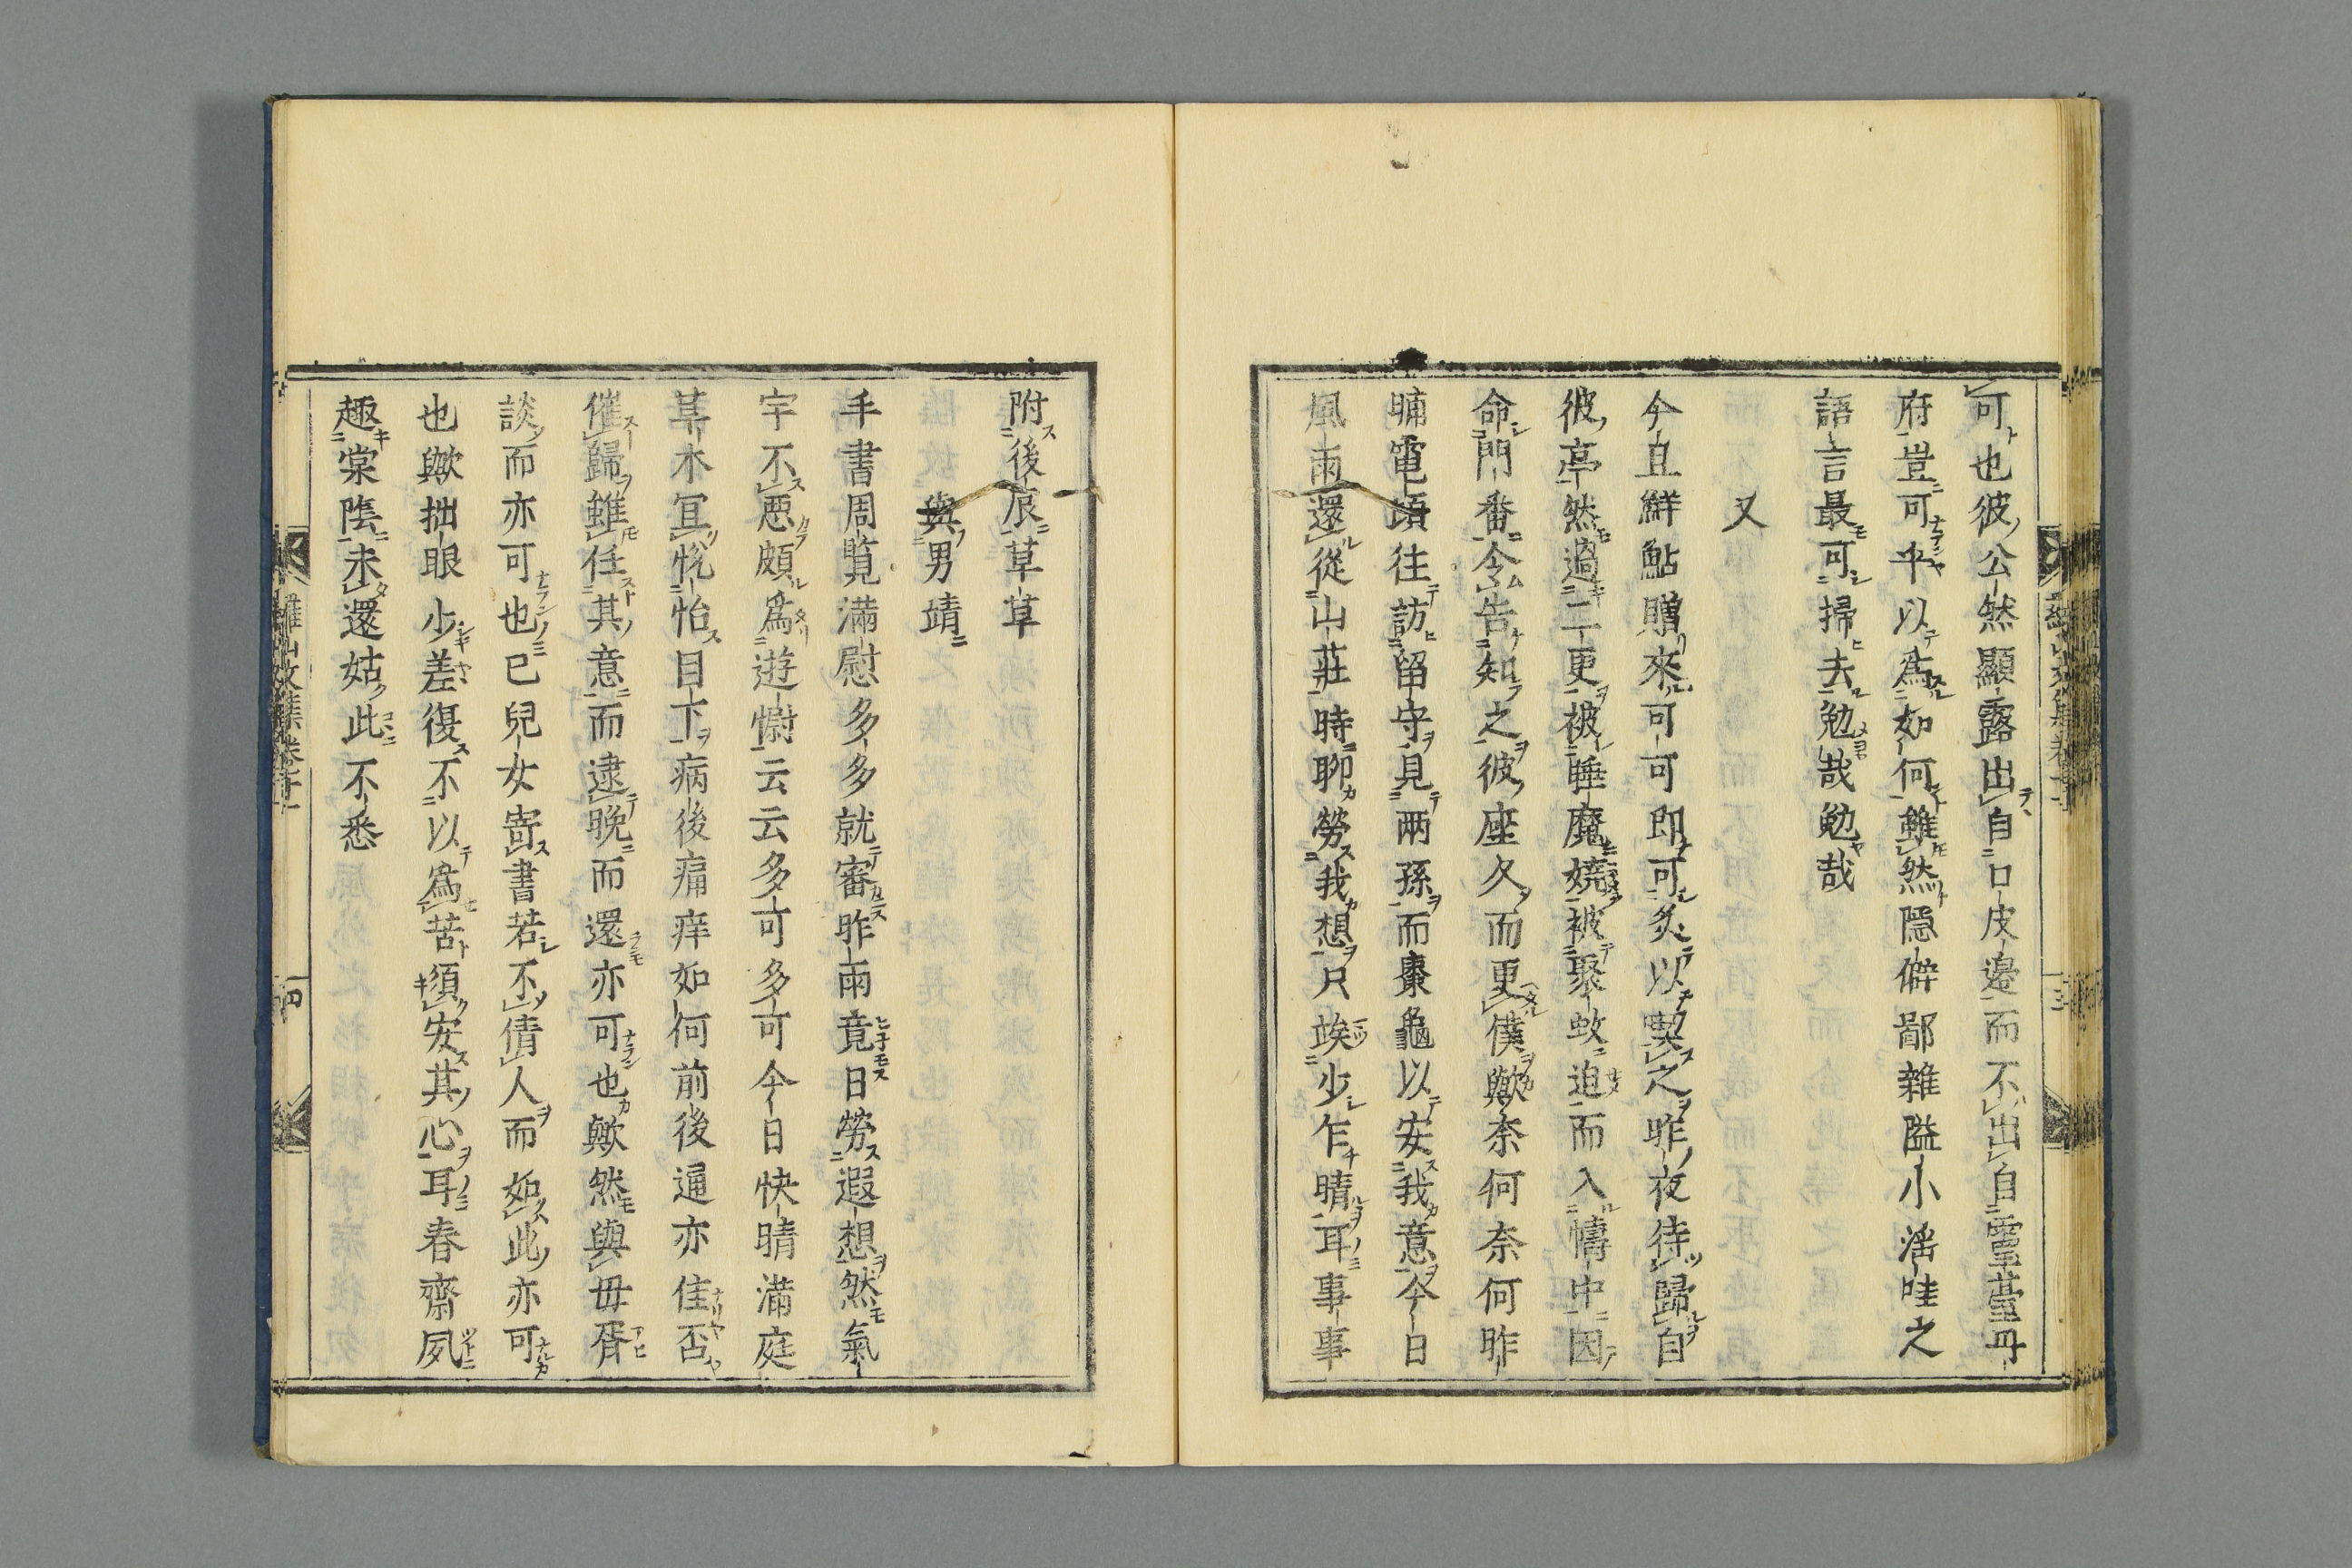 可也彼公然顯露出自口皮邊而不出自靈臺丹
府豈可乎以爲如何雖然隱僻鄙雜隘小滛哇之
語言最可掃去勉哉勉哉
又
今且鮮鮎贈來可可即可炙以喫之昨夜待歸自
彼亭然過二更被睡魔嬈被聚蚊迫而入幬中因
命門番今告知之彼座久而更僕歟奈何奈何昨
晡電頃往訪留守見兩孫而棗龜以安我意今日
風雨還從山莊時聊勞我想只竢少乍晴耳事事
附後辰草草
與男靖
手書周覧滿慰多多就審昨雨竟日勞遐想然氣
宇不惡頗爲遊慰云云多可多可今日快晴滿庭
草木冝悅怡目下病後痛痒如何前後逼亦佳否
催歸雖任其意而逮晩而還亦可也歟然與毋胥
談而亦可也已兒女寄書若不倩人而如此亦可
也歟拙眼少差復不以爲苦須安其心耳春齋夙
趣棠隂未還姑此不悉
羅山文集卷十一
四